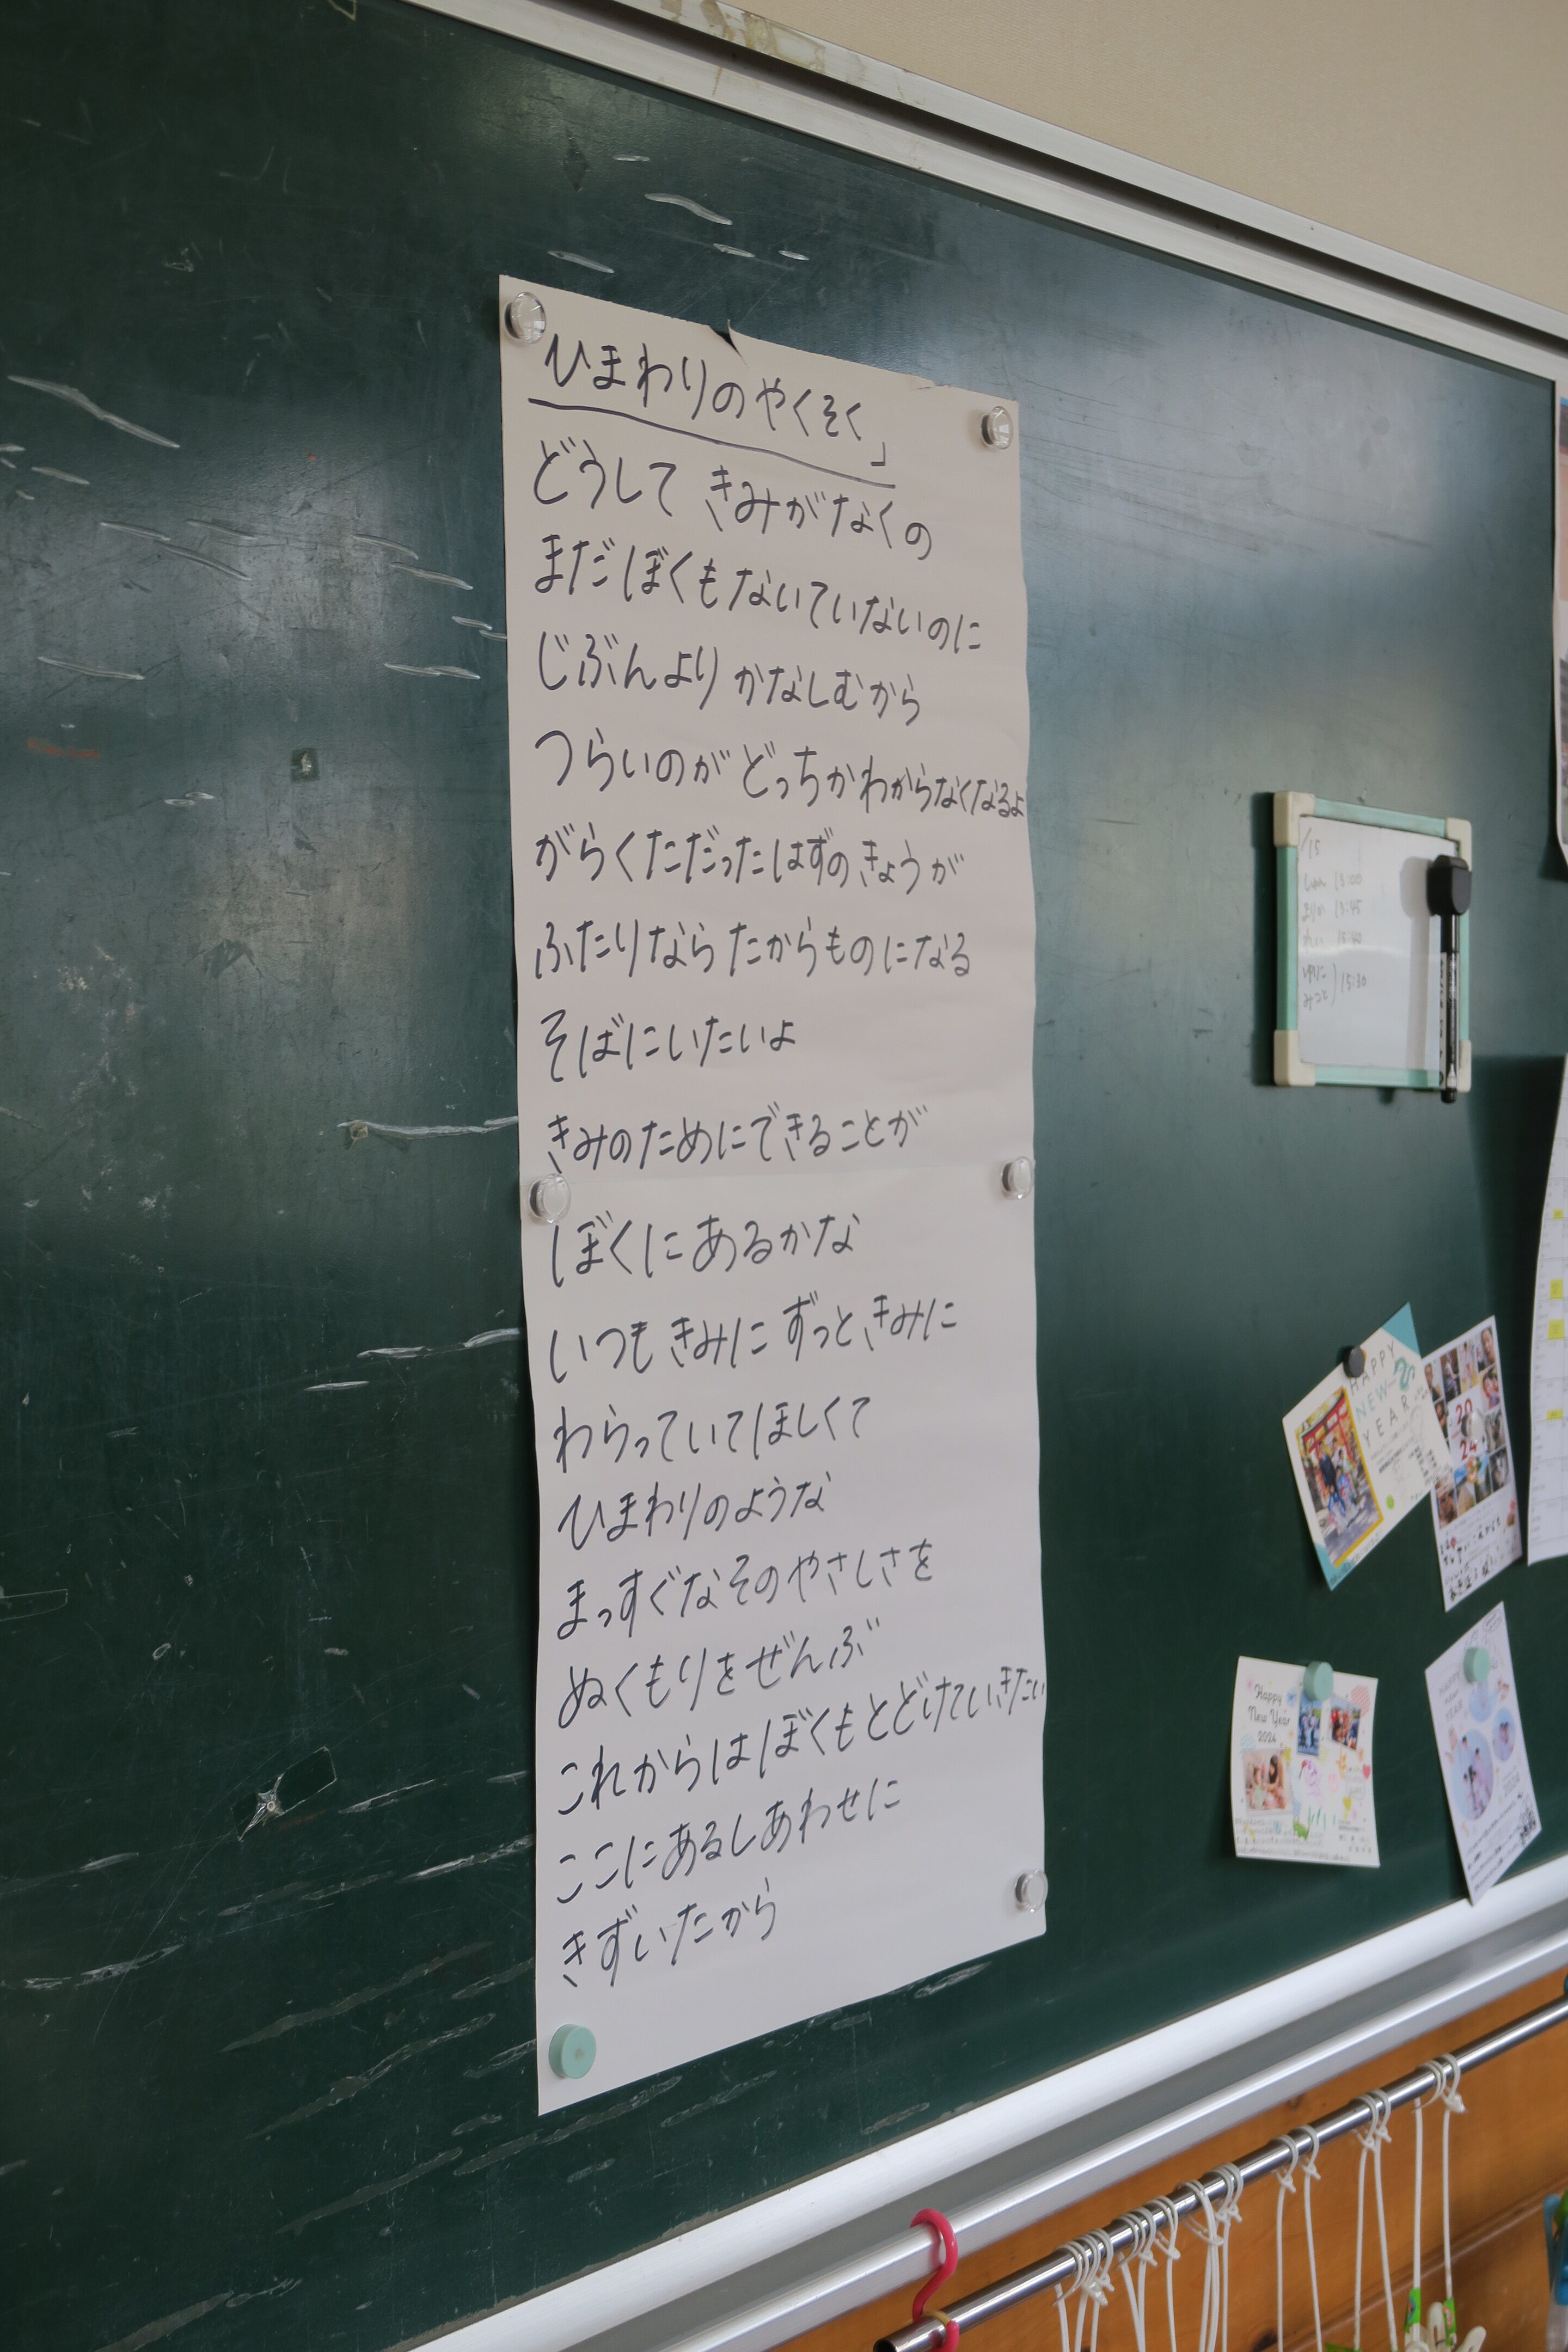 ひまわりのやくそく」
どうして きみがなくの
まだぼくもないていないのに
じぶんより かなしむから
つらいのが どっちかわからなくなるよ
がらくただったはずの きょうが
ふたりなら たからものになる
そばにいたいよ
きみのためにできることが
ぼくにあるかな
いつも きみに ずっと きみに
わらっていてほしくて
ひまわりのような
まっすぐなそのやさしさを
ぬくもりをぜんぶ
これからはぼくもとどけていきたい
ここにあるしあわせに
きずいたから
/15
13:00
13:45
15:40
ゆりに
みこと
15:30
HAPPY
NEW
YEAR
20
24
Happy
New Year
2024